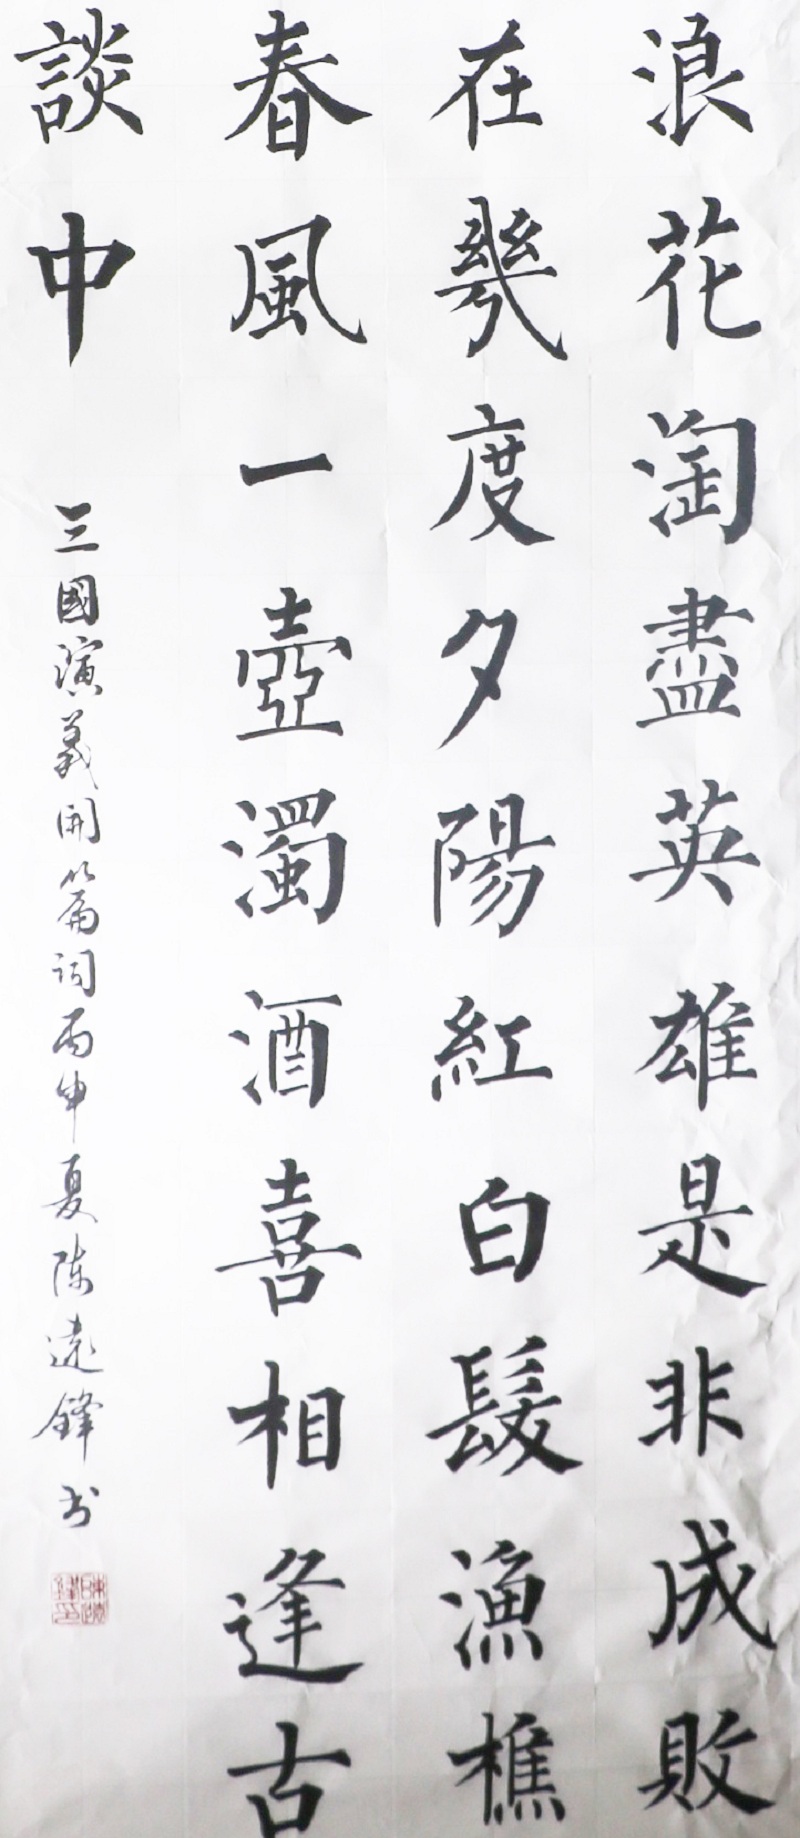 浪花淘盡英雄是非成敗
在幾度夕陽紅白髮漁樵
春風一壺濁酒喜相逢古
談中
三國演義開篇詞丙申夏陈遠鋒书